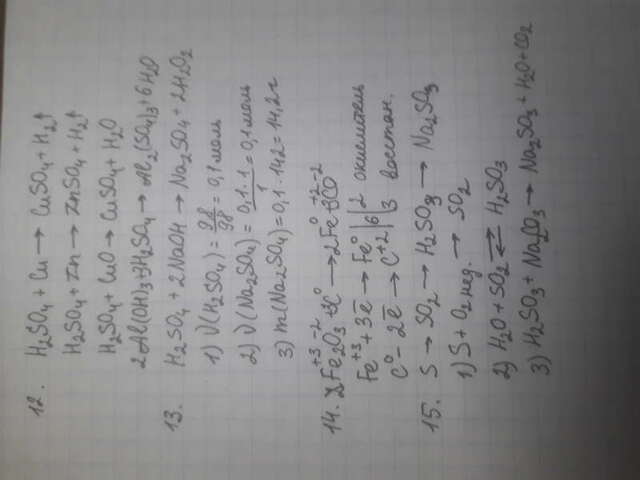 12. H₂SO₄ + Cu → CuSO₄ + H₂↑
H₂SO₄ + Zn → ZnSO₄ + H₂↑
H₂SO₄ + CuO → CuSO₄ + H₂O
2Al(OH)₃ + 3H₂SO₄ → Al₂(SO₄)₃ + 6H₂O
13. H₂SO₄ + 2NaOH → Na₂SO₄ + 2H₂O₂
1) ν(H₂SO₄) = 9,8/98 = 0,1 моль
2) ν(Na₂SO₄) = 0,1·1/1 = 0,1 моль
3) m(Na₂SO₄) = 0,1 · 142 = 14,2 г
14. 2Fe₂⁺³O₃⁻² + 3C⁰ → 2Fe⁰ + 3C⁺²O⁻²
Fe⁺³ + 3e̅ → Fe⁰ |6| 2 окислитель
C⁰ - 2e̅ → C⁺² | | 3 восстан.
15. S → SO₂ → H₂SO₃ → Na₂SO₃
1) S + O₂ нед. → SO₂
2) H₂O + SO₂ ⇄ H₂SO₃
3) H₂SO₃ + Na₂CO₃ → Na₂SO₃ + H₂O + CO₂